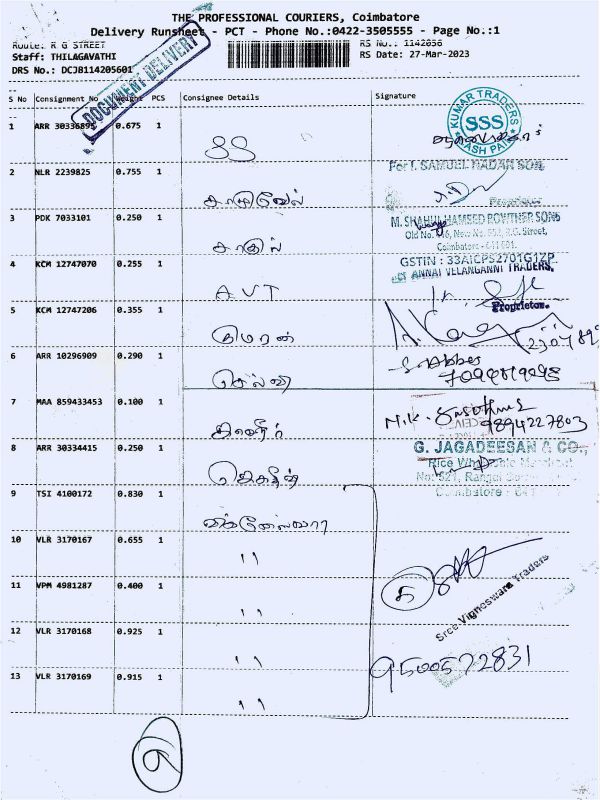 THE PROFESSIONAL COURIERS, Coimbatore
Delivery Runsheet - PCT - Phone No.:0422-3505555 - Page No.:1
Route: R G STREET RS No.: 1142056
Staff: THILAGAVATHI RS Date: 27-Mar-2023
DRS No.: DCJB114205601
DOCUMENT DELIVERY
S No Consignment No Weight PCS Consignee Details Signature
KUMAR TRADERS
SSS
CASH PAID
1 ARR 30336895 0.675 1 SS
For I. SAMUEL NADAR SON,
2 NLR 2239825 0.755 1
Proprietor
M. SHAHUL HAMEED ROWTHER SONS
3 PDK 7033101 0.250 1
Old No. New No. 552, R.G. Street,
Coimbatore - 641 001.
GSTIN : 33AICPS2701G1ZP
4 KCM 12747070 0.255 1 AVT
ANNAI VELANGANNI TRADERS,
Proprietor.
5 KCM 12747206 0.355 1 குமரன்
6 ARR 10296909 0.290 1 செல்வி
S. Abbas
7 MAA 859433453 0.100 1
9894227803
8 ARR 30334415 0.250 1 ஜெகதீஸ்
G. JAGADEESAN & CO.,
Rice Wholesale Merchant
No: 521, Rangai
Coimbatore - 641
9 TSI 4100172 0.830 1
10 VLR 3170167 0.655 1 "
11 VPM 4981287 0.400 1 "
Sree Vigneswara Traders
12 VLR 3170168 0.925 1 "
9500572831
13 VLR 3170169 0.915 1 "